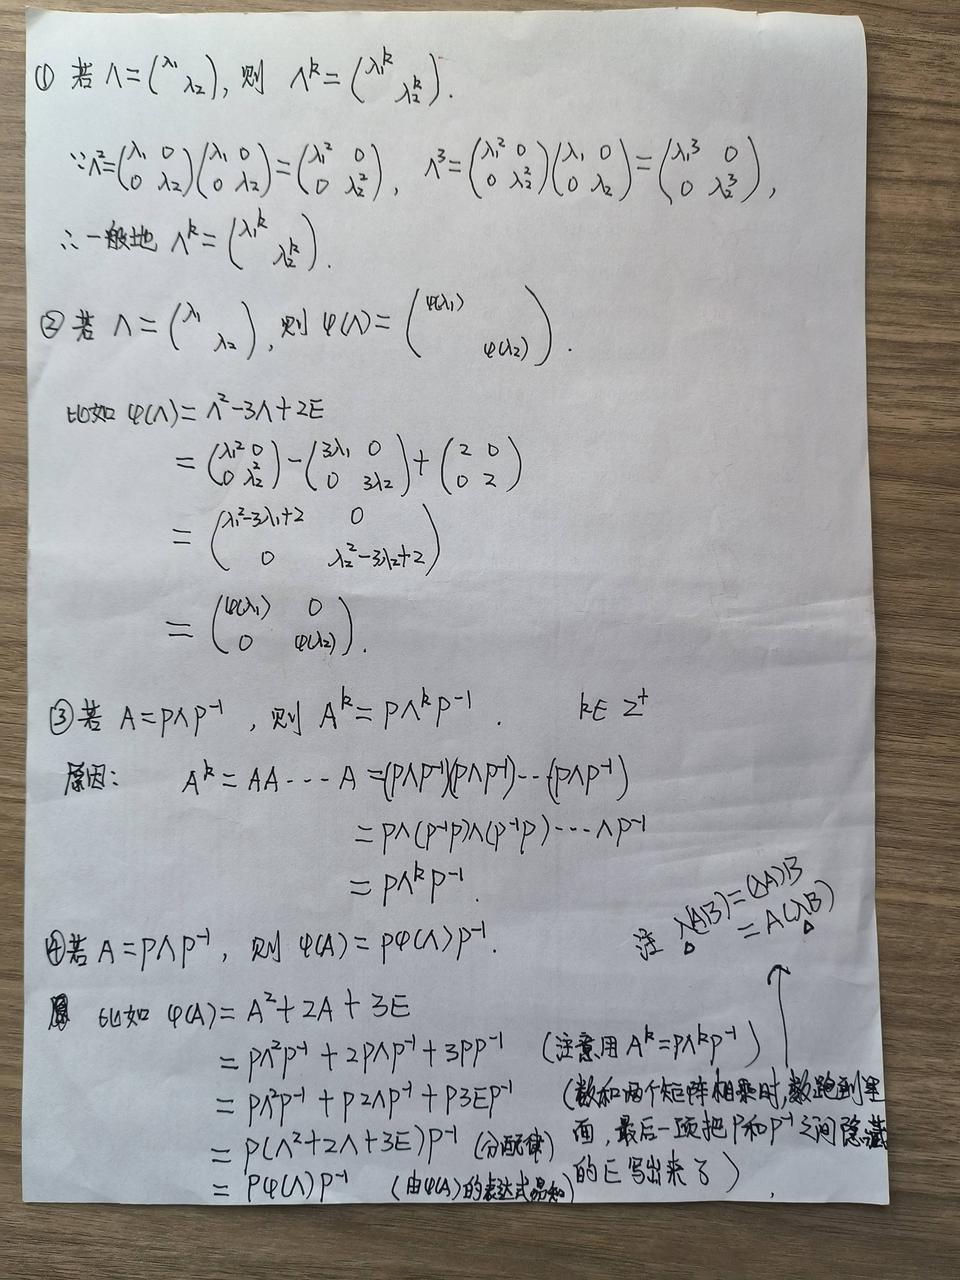 ① 若 Λ=(λ₁ λ₂), 则 Λᵏ=(λ₁ᵏ λ₂ᵏ).
∵Λ²=(λ₁ 0 0 λ₂)(λ₁ 0 0 λ₂)=(λ₁² 0 0 λ₂²), Λ³=(λ₁² 0 0 λ₂²)(λ₁ 0 0 λ₂)=(λ₁³ 0 0 λ₂³),
∴一般地 Λᵏ=(λ₁ᵏ λ₂ᵏ).
② 若 Λ=(λ₁ λ₂), 则 φ(Λ)=(φ(λ₁) φ(λ₂)).
比如 φ(Λ)=Λ²-3Λ+2E
=(λ₁² 0 0 λ₂²)-(3λ₁ 0 0 3λ₂)+(2 0 0 2)
=(λ₁²-3λ₁+2 0 0 λ₂²-3λ₂+2)
=(φ(λ₁) 0 0 φ(λ₂)).
③ 若 A=PΛP⁻¹, 则 Aᵏ=PΛᵏP⁻¹. k∈Z⁺
原因: Aᵏ=AA···A=(PΛP⁻¹)(PΛP⁻¹)···(PΛP⁻¹)
=PΛ(P⁻¹P)Λ(P⁻¹P)···ΛP⁻¹
=PΛᵏP⁻¹.
注 λ(AB)=(λA)B
=A(λB)
④若 A=PΛP⁻¹, 则 φ(A)=Pφ(Λ)P⁻¹.
比如 φ(A)=A²+2A+3E
=PΛ²P⁻¹+2PΛP⁻¹+3PP⁻¹ (注意用 Aᵏ=PΛᵏP⁻¹)
=PΛ²P⁻¹+P2ΛP⁻¹+P3EP⁻¹ (数和两个矩阵相乘时,数跑到里
面,最后一项把P和P⁻¹之间隐藏
=P(Λ²+2Λ+3E)P⁻¹ (分配律)
的E写出来了)
=Pφ(Λ)P⁻¹ (由φ(A)的表达式易知)